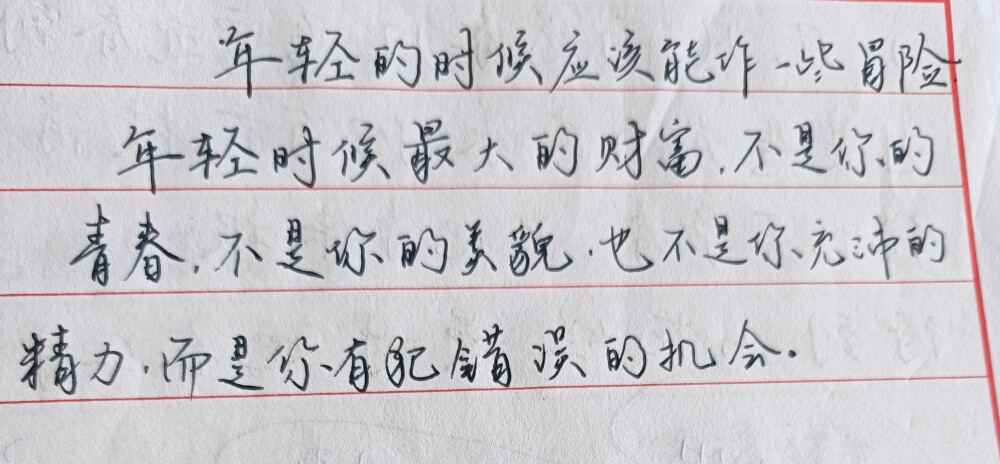 年轻的时候应该能作一些冒险
年轻时候最大的财富,不是你的
青春,不是你的美貌,也不是你充沛的
精力,而是你有犯错误的机会.